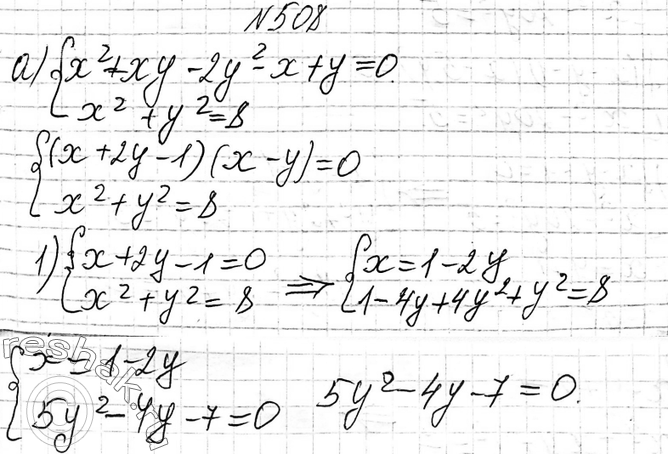 N508
а) { x² + xy - 2y² - x + y = 0
x² + y² = 8
{ (x + 2y - 1)(x - y) = 0
x² + y² = 8
1) { x + 2y - 1 = 0 ⇒ { x = 1 - 2y
x² + y² = 8 1 - 4y + 4y² + y² = 8
{ x = 1 - 2y
5y² - 4y - 7 = 0 5y² - 4y - 7 = 0.
reshak.ru